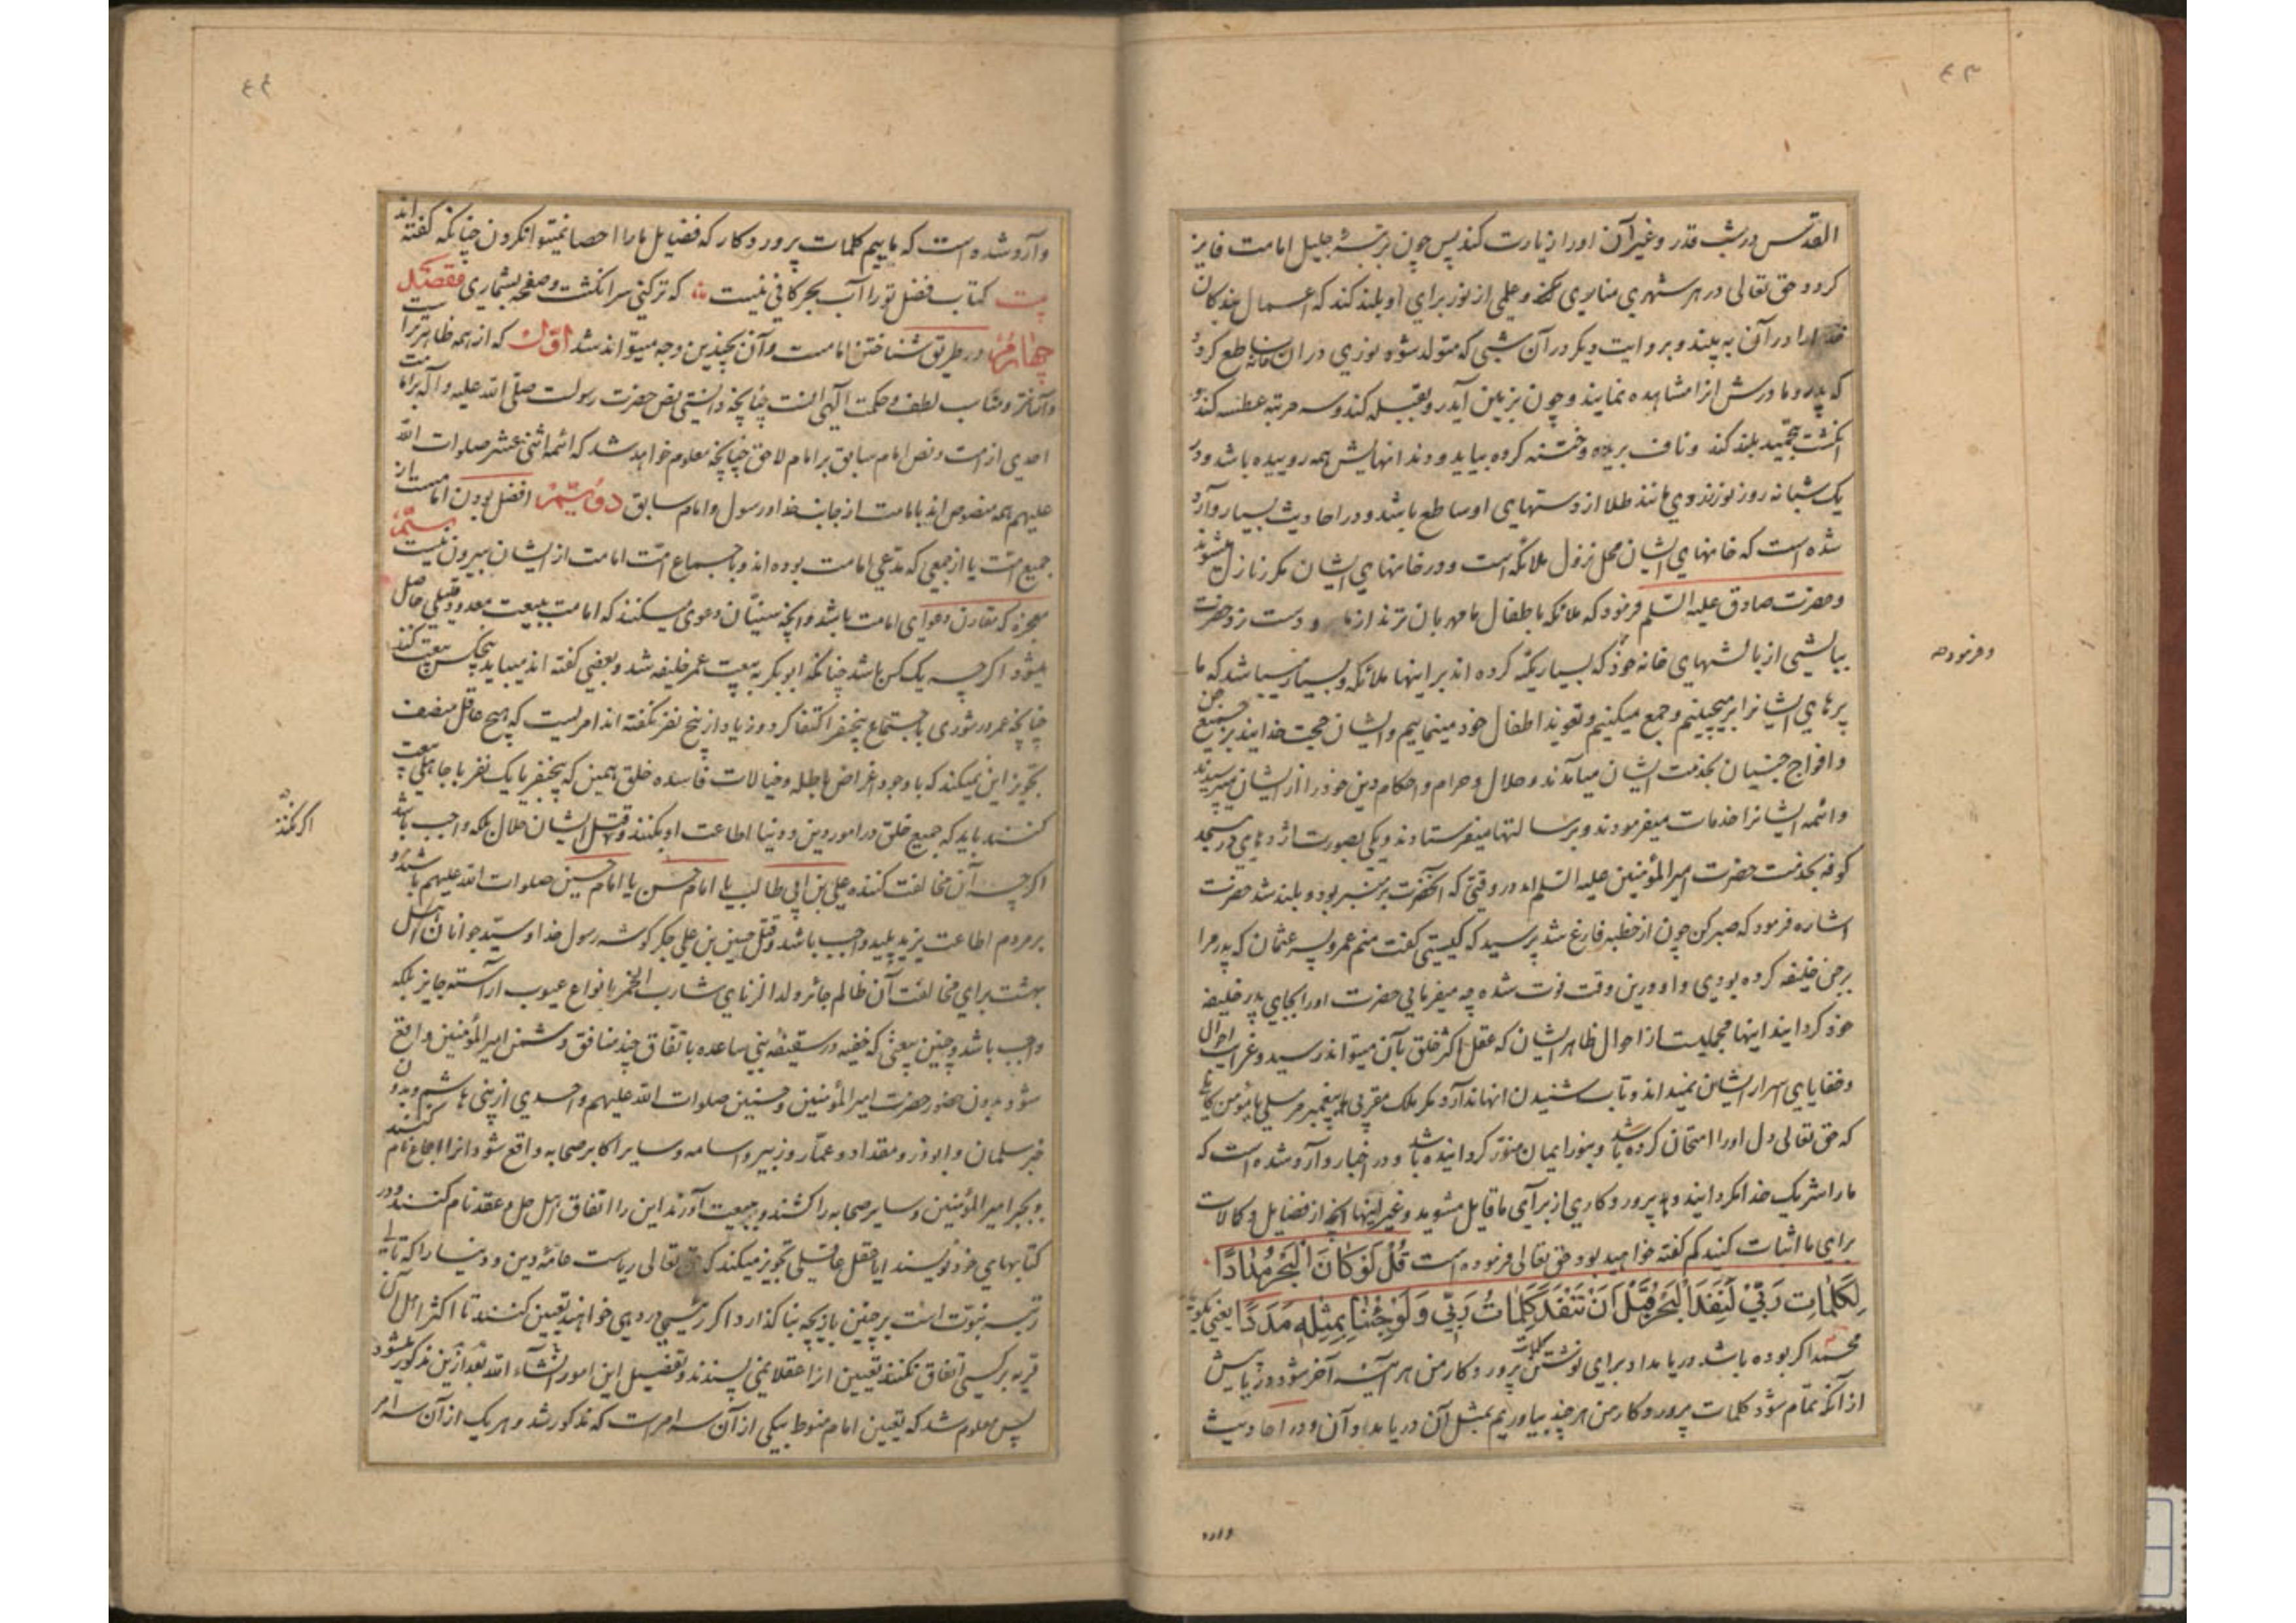 ۴۳
القدس در شب قدر و غیر آن او را زیارت کند پس چون بمرتبهٔ جلیل امامت فایز
کردد حق تعالی در هر شهری مناری و علمی از نور برای او بلند کند که اعمال بندکان
خدا را در آن به بیند و بروایت دیکر در آن شبی که متولد شود نوری در ان خانه ساطع کردد
که پدر و مادرش انرا مشاهده نمایند و چون بزمین آید رو بقبله کند و سه مرتبه عطسه کند و
انکشت بتحمید بلند کند و ناف بریده و ختنه کرده بیاید و دندانهایش همه روییده باشد و در
یک شبانه روز نور زردی مانند طلا از دستهای او ساطع باشد و در احادیث بسیار وارد
شده است که خانهای ایشان محل نزول ملائکه است و در خانهای ایشان مکرر نازل میشوند
و حضرت صادق علیه السلم فرمود که ملائکه باطفال ما مهربان ترند از ما و دست زد حضرت
ببالشی از بالشهای خانه خود که بسیار تکیه کرده اند بر اینها ملائکه و بسیار میباشد که ما
وفرموده
پرهای ایشانرا برمیچینیم و جمع میکنیم و تعویذ اطفال خود مینماییم و ایشان حجت خدایند بر جمیع جن
و افواج جنیان بخدمت ایشان میآمدند و حلال و حرام و احکام دین خود را از ایشان میپرسیدند
و ائمه ایشانرا خدمات میفرمودند و برسالتها میفرستادند و یکی بصورت اژدهای در مسجد
کوفه بخدمت حضرت امیرالمؤمنین علیه السلم امد در وقتی که آنحضرت بر منبر بود و بلند شد حضرت
اشاره فرمود که صبر کن چون از خطبه فارغ شد پرسید که کیستی کفت منم عمرو پسر عثمان که پدر مرا
بر جن خلیفه کرده بودی و او درین وقت فوت شده چه میفرمایی حضرت او را بجای پدر خلیفه
خود کردانید اینها مجملیست از احوال ظاهر ایشان که عقل اکثر خلق بآن میتواند رسید و غرایب احوال
و خفایای اسرار ایشان نمیداند و تاب شنیدن انها ندارد مکر ملک مقربی یا پیغمبر مرسلی یا مؤمن کاملی
که حق تعالی دل او را امتحان کرده باشد و بنور ایمان منور کردانیده باشد و در اخبار وارد شده است که
ما را شریک خدا نکردانید و به پرورد کاری از برای ما قایل مشوید و غیر اینها آنچه از فضایل و کمالات
برای ما اثبات کنید کم کفته خواهید بود حق تعالی فرموده است قُلْ لَوْ كَانَ الْبَحْرُ مِدَادًا
لِكَلِمَاتِ رَبِّي لَنَفِدَ الْبَحْرُ قَبْلَ أَنْ تَنْفَدَ كَلِمَاتُ رَبِّي وَلَوْ جِئْنَا بِمِثْلِهِ مَدَدًا یعنی بکو یا
محمد اکر بوده باشد دریا مداد برای نوشتن کلمات پرورد کار من هر آینه آخر شود دریا پیش
از آنکه تمام شود کلمات پرورد کار من هر چند بیاوریم بمثل آن دریا مداد آن و در احادیث
وارد
۴۴
وارد شده است که ماییم کلمات پرورد کار که فضایل ما را احصا نمیتوان کردن چنانکه کفته اند
بیت کتاب فضل تو را آب بحر کافی نیست که تر کنی سر انکشت و صفحه بشماری فصل
چهارم در طریق شناختن امامست و آن بچندین وجه میتواند شد اول که از همه ظاهرتر است
و آسانتر و مناسب لطف و حکمت آلهی الست چنانچه دانستی نص حضرت رسولست صلی الله علیه و آله بر امامت
احدی از امت و نص امام سابق بر امام لاحق چنانچه معلوم خواهد شد که ائمه اثنی عشر صلوات الله
علیهم همه منصوص اند بامامت از جانب خدا و رسول و امام سابق دویم افضل بودن امامست از
جمیع امت یا از جمعی که مدعی امامت بوده اند و باجماع امت امامت از ایشان بیرون نیست سیم
معجزه که مقارن دعوای امامت باشد و آنچه سنیّان دعوی میکنند که امامت ببیعت معدود قلیلی حاصل
میشود اکر چه یک کس باشد چنانکه ابوبکر به بیعت عمر خلیفه شد و بعضی کفته اند میباید پنجکس بیعت کنند
چنانچه عمر در شوری باجتماع پنجنفر اکتفا کرد و زیاد از پنج نفر نکفته اند امریست که هیچ عاقل منصف
تجویز این نمیکند که با وجود اغراض باطله و خیالات فاسده خلق همین که پنجنفر یا یک نفر با جاهلی بیعت
کنند باید که جمیع خلق در امور دین و دنیا اطاعت او بکنند و قتل ایشان حلال بلکه واجب باشد
اکر نکنند
اکر چه آن مخالفت کننده علی بن ابی طالب یا امام حسن یا امام حسین صلوات الله علیهم باشد و
بر مردم اطاعت یزید پلید واجب باشد و قتل حسین بن علی جکر کوشه رسول خدا و سید جوانان اهل
بهشت برای مخالفت آن ظالم جائر ولد الزنای شارب الخمر بانواع عیوب آراسته جایز بلکه
واجب باشد و چنین بیعتی که خفیه در سقیفه بنی ساعده باتفاق چند منافق دشمن امیرالمؤمنین واقع
شود بدون حضور حضرت امیرالمؤمنین و حسنین صلوات الله علیهم و احدی از بنی هاشم و بدون
خبر سلمان و ابوذر و مقداد و عمّار و زبیر و اسامه و سایر اکابر صحابه واقع شود انرا اجماع نام کنند
و بجبر امیرالمؤمنین و سایر صحابه را کشند و ببیعت آورند این را اتفاق اهل حل و عقد نام کنند و در
کتابهای خود نویسند ایا عقل عاقلی تجویز میکند که حق تعالی ریاست عامّهٔ دین و دنیا را که تالی
رتبهٔ نبوّت است بر چنین بازیچه بنا کذارد اکر رئیسی در دهی خواهند تعیین کنند تا اکثر اهل آن
قریه بر کسی اتفاق نکنند تعیین انرا عقلا نمی پسندند و تفصیل این امور انشاء الله بعد ازین مذکور میشود
پس معلوم شد که تعیین امام منوط بیکی از آن سه امر است که مذکور شد و هر یک از آن سه امر